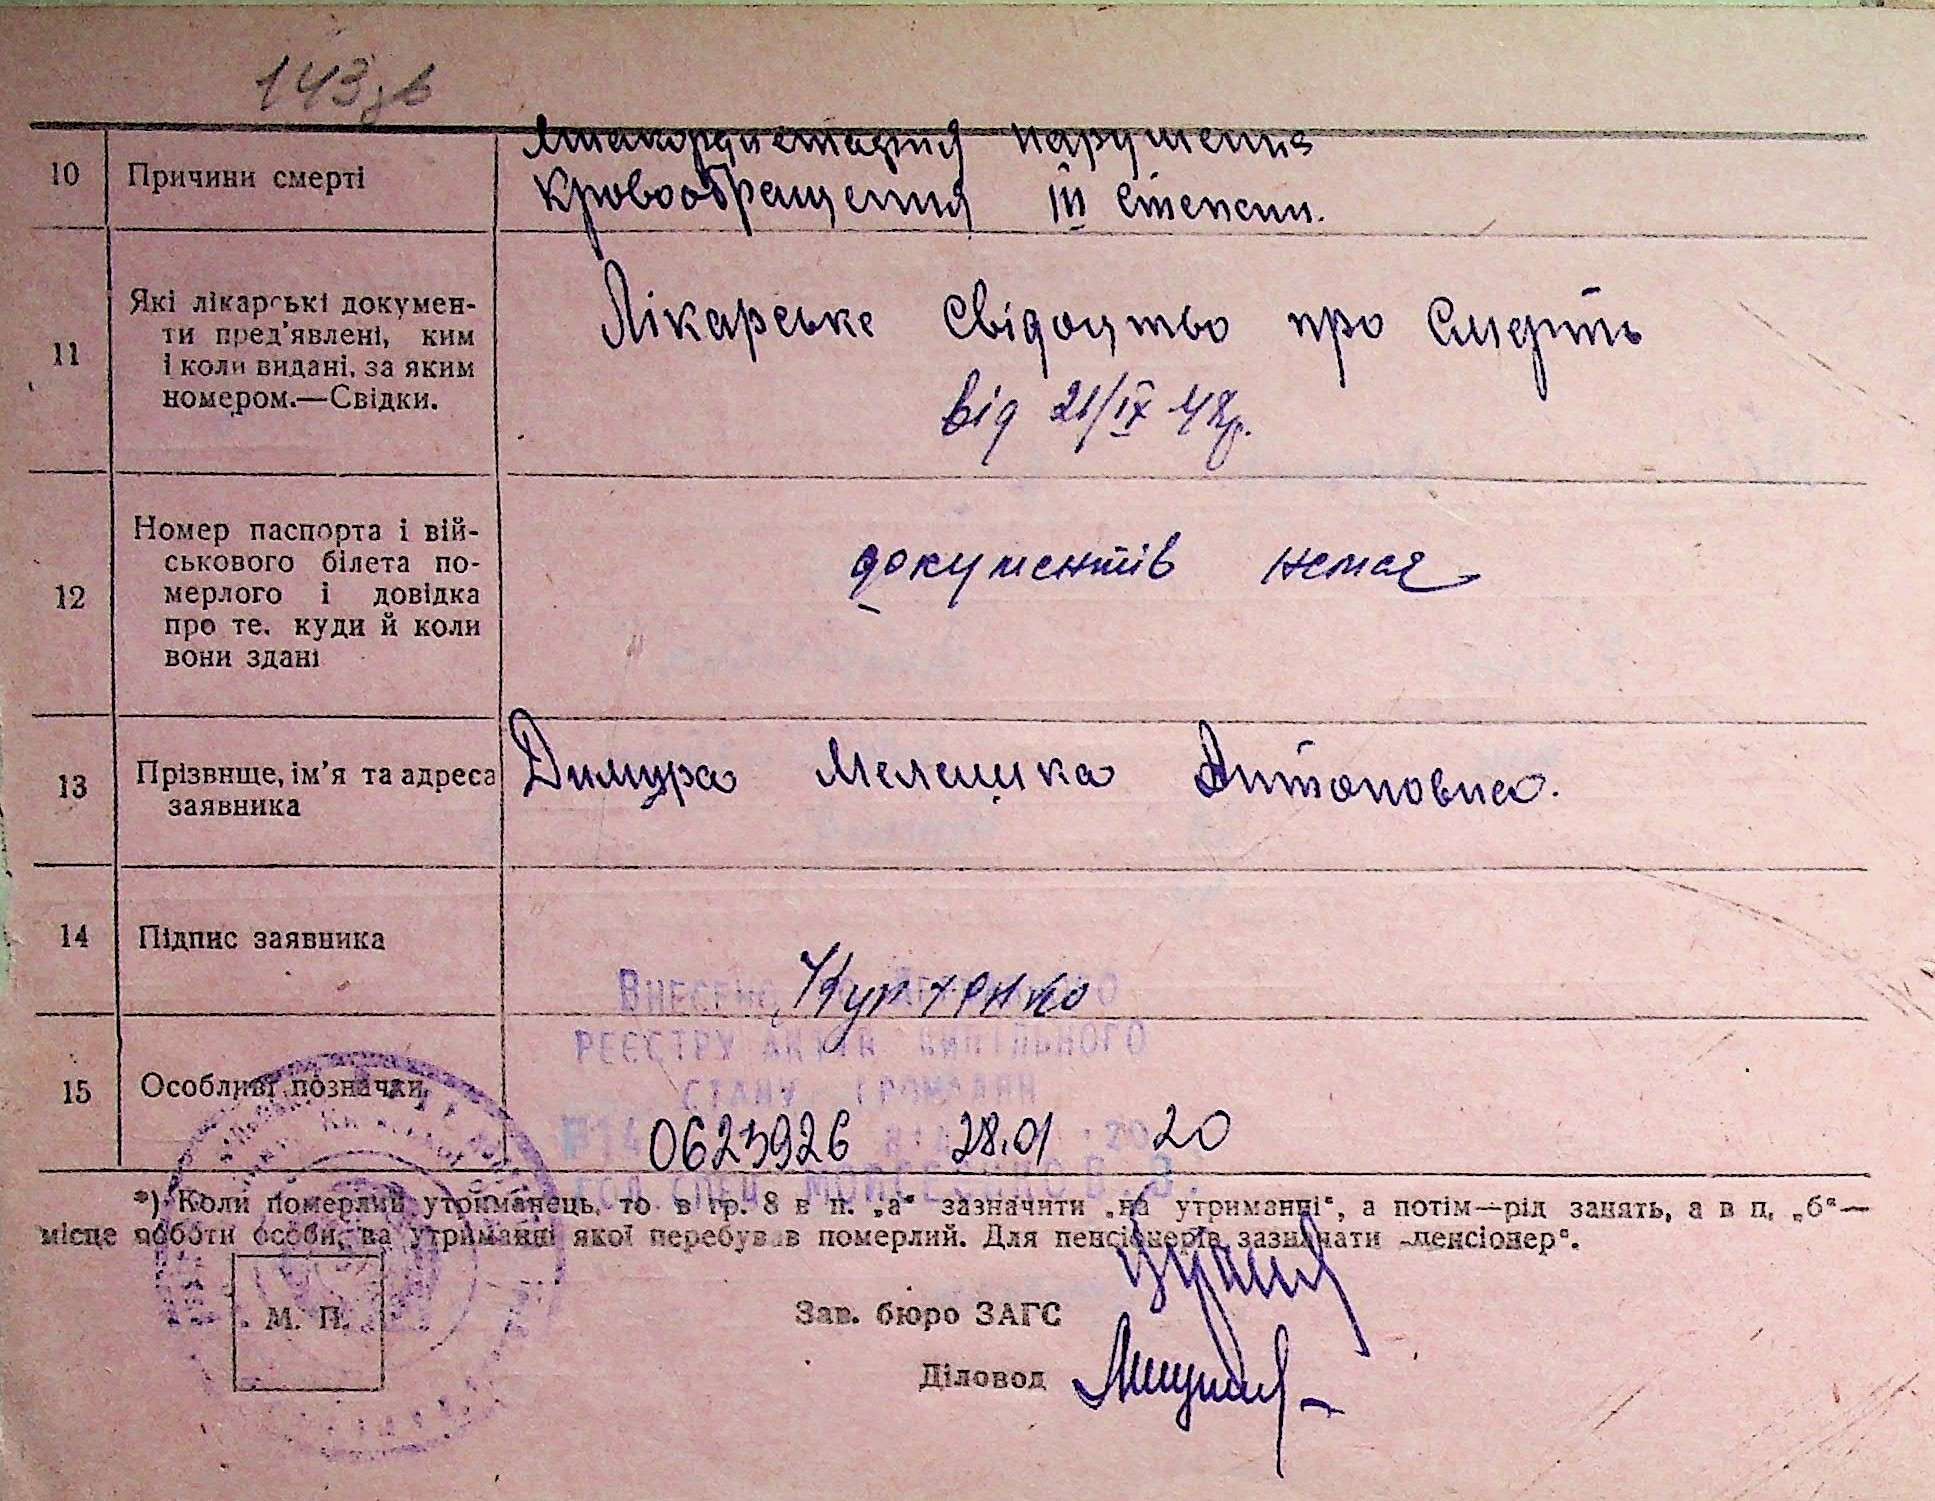 143 зв
10 Причини смерті
нарушения
кровообращения III степени.
11 Які лікарські докумен-
ти пред'явлені, ким
і коли видані, за яким
номером.—Свідки.
Лікарське свідоцтво про смерть
від 21/IX 48р.
12 Номер паспорта і вій-
ськового білета по-
мерлого і довідка
про те, куди й коли
вони здані
документів немає
13 Прізвище, ім'я та адреса
заявника
Димура Антоновна.
14 Підпис заявника
ВНЕСЕНО ДО ДЕРЖАВНОГО
РЕЄСТРУ АКТІВ ЦИВІЛЬНОГО
СТАНУ ГРОМАДЯН
15 Особливі позначки
0623926 28.01 .2020
*) Коли померлий утриманець, то в гр. 8 в п. „а“ зазначити „на утриманні“, а потім—рід занять, а в п. „б“—
місце роботи особи, на утриманні якої перебував померлий. Для пенсіонерів зазначати „пенсіонер“.
М. П.
Зав. бюро ЗАГС
Діловод